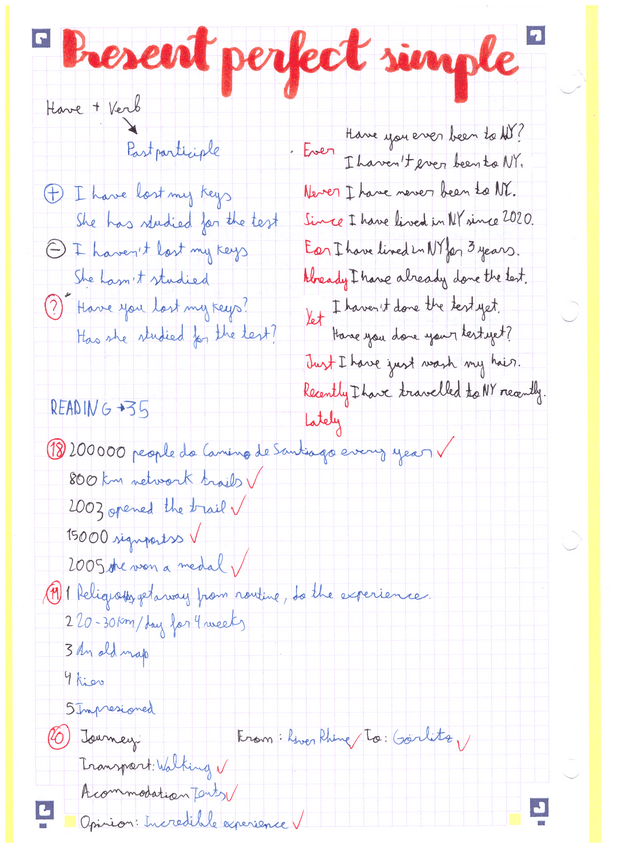 Present perfect simple
Have + Verb
Past participle
+ I have lost my keys
She has studied for the test
- I haven't lost my keys
She hasn't studied
? Have you lost my keys?
Has she studied for the test?
Ever Have you ever been to NY?
I haven't ever been to NY.
Never I have never been to NY.
Since I have lived in NY since 2020.
For I have lived in NY for 3 years.
Already I have already done the test.
Yet I haven't done the test yet.
Have you done your test yet?
Just I have just wash my hair.
Recently I have travelled to NY recently.
Lately
READING → 35
18 200000 people do Camino de Santiago every year
800 km network trails
2003 opened the trail
15000 signportss
2005 she won a medal
19 1 Religious, get away from routine, do the experience.
2 20-30 km/day for 4 weeks
3 An old map
4 Kiev
5 Impresioned
20 Journey From: River Rhine To: Görlitz
Transport: Walking
Acommodation Tents
Opinion: Incredible experience